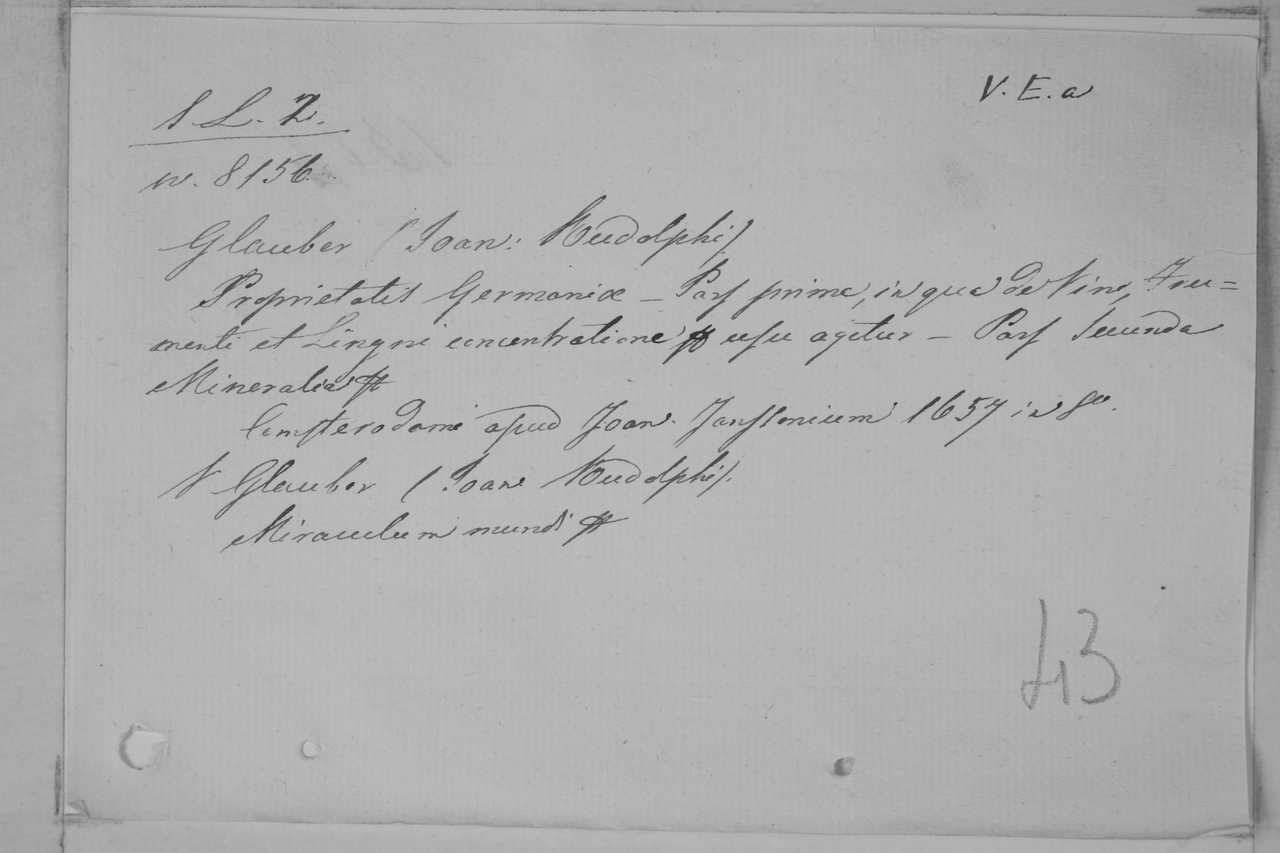 V. E. a
S L. 2.
n. 8156.
Glauber (Joan: Rudolphi)
Proprietatis Germaniæ – Pars prima, in qua de Vini, Fru=
menti et Lingni concentratione & usu agitur – Pars Secunda
Mineralia &
Amsterodami apud Joan. Janssonium 1657 in 8º.
V Glauber (Joan Rudolphi).
Miraculum mundi &
43